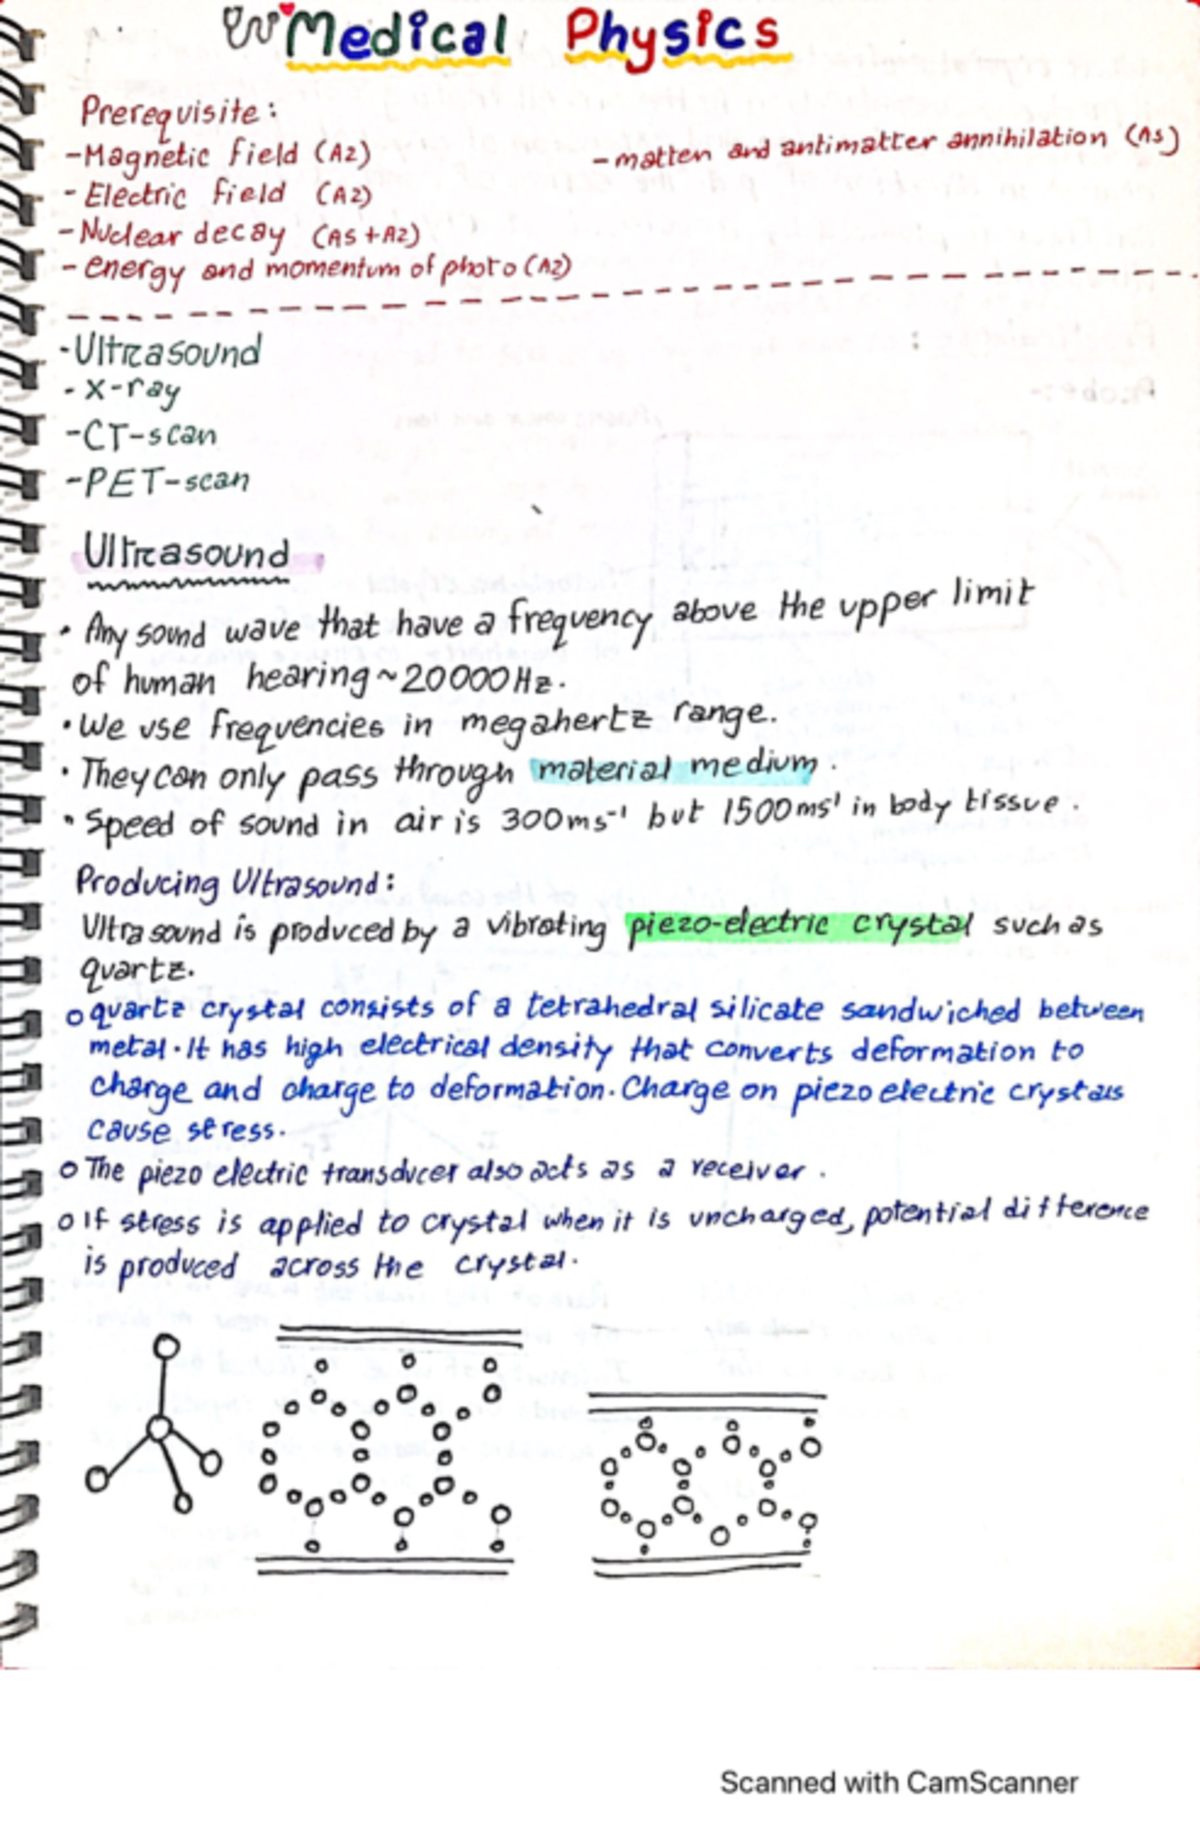 Medical Physics
Prerequisite:
-Magnetic field (A2)
- Electric field (A2)
-Nuclear decay (AS+A2)
- energy and momentum of photo (A2)
-matten and antimatter annihilation (AS)
-Ultrasound
- X-ray
-CT-scan
-PET-scan
Ultrasound
• Any sound wave that have a frequency above the upper limit
of human hearing ~20000Hz.
• We use frequencies in megahertz range.
• They can only pass through material medium.
• Speed of sound in air is 300ms⁻¹ but 1500ms¹ in body tissue.
Producing Ultrasound:
Ultrasound is produced by a vibrating piezo-electric crystal such as
quartz.
o quartz crystal consists of a tetrahedral silicate sandwiched between
metal. It has high electrical density that converts deformation to
charge and charge to deformation. Charge on piezo electric crystals
cause stress.
o The piezo electric transducer also acts as a receiver.
o If stress is applied to crystal when it is uncharged, potential difference
is produced across the crystal.
Scanned with CamScanner